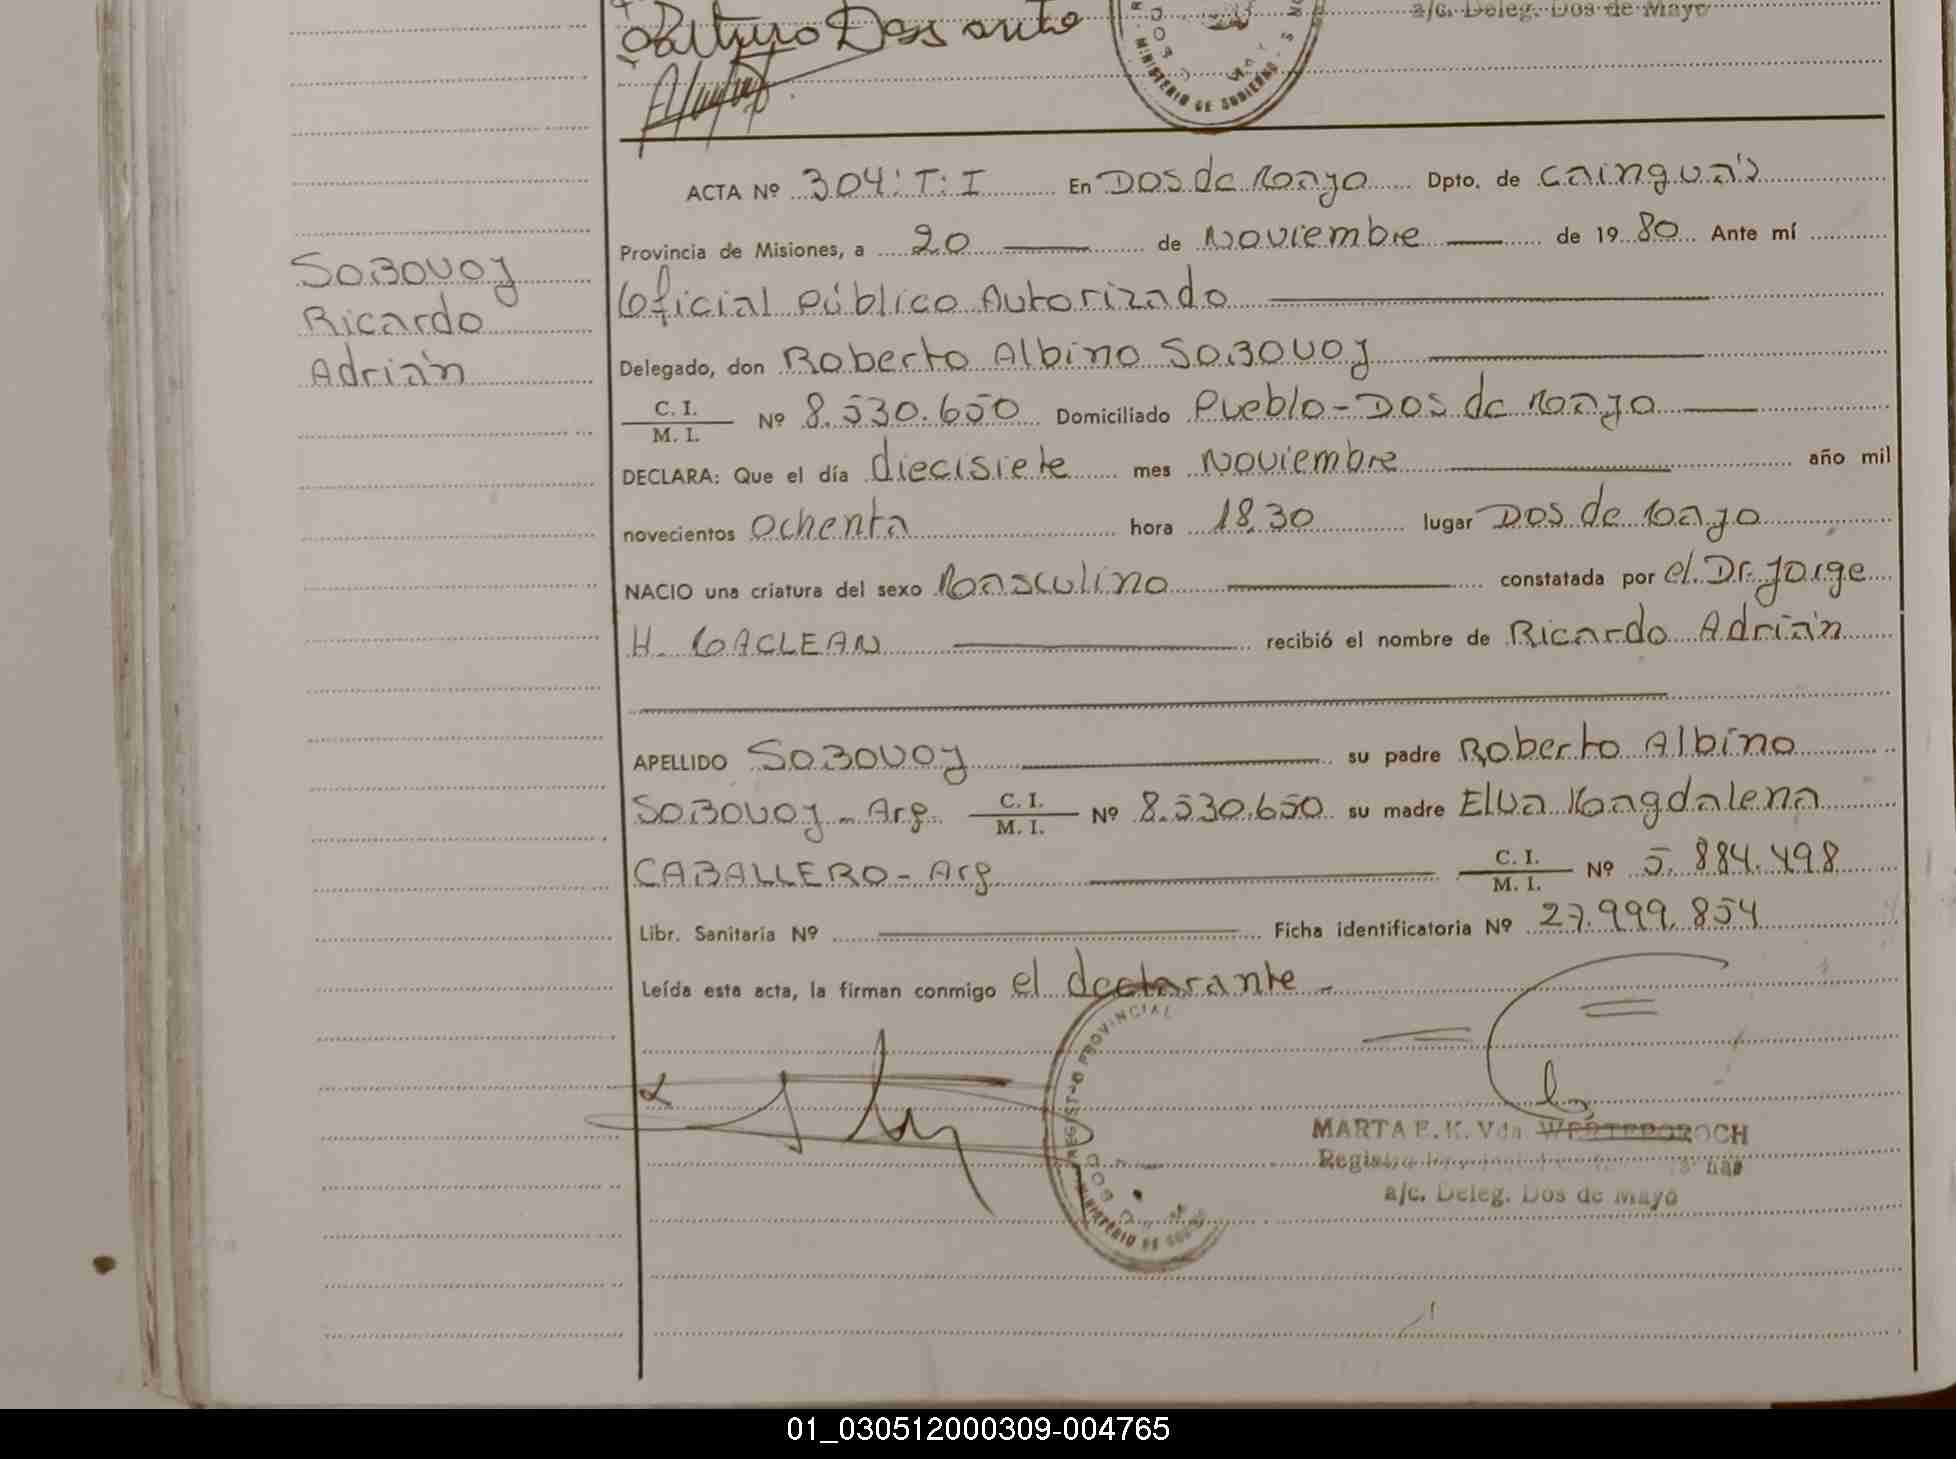 a/c. Deleg. Dos de Mayo
Arturo Dos santo
MINISTERIO DE GOBIERNO
ACTA Nº 304: T: I En Dos de Mayo Dpto. de Cainguás
Provincia de Misiones, a 20 de Noviembre de 1980 Ante mí
Oficial Público Autorizado
Delegado, don Roberto Albino SOBOVOJ
C. I.
M. I. Nº 8.530.650 Domiciliado Pueblo - Dos de Mayo
DECLARA: Que el día diecisiete mes Noviembre año mil
novecientos Ochenta hora 18.30 lugar Dos de Mayo
NACIO una criatura del sexo Masculino constatada por el Dr. Jorge
H. MACLEAN recibió el nombre de Ricardo Adrián
APELLIDO SOBOVOJ su padre Roberto Albino
SOBOVOJ - Arg. C. I.
M. I. Nº 8.530.650 su madre Elva Magdalena
CABALLERO - Arg C. I.
M. I. Nº 5.884.498
Libr. Sanitaria Nº Ficha identificatoria Nº 27.999.854
Leída esta acta, la firman conmigo el declarante
SOBOVOJ
Ricardo
Adrián
REGISTRO PROVINCIAL
DOS
MINISTERIO DE
MARTA E. K. Vda.
a/c. Deleg. Dos de Mayo
01_030512000309-004765